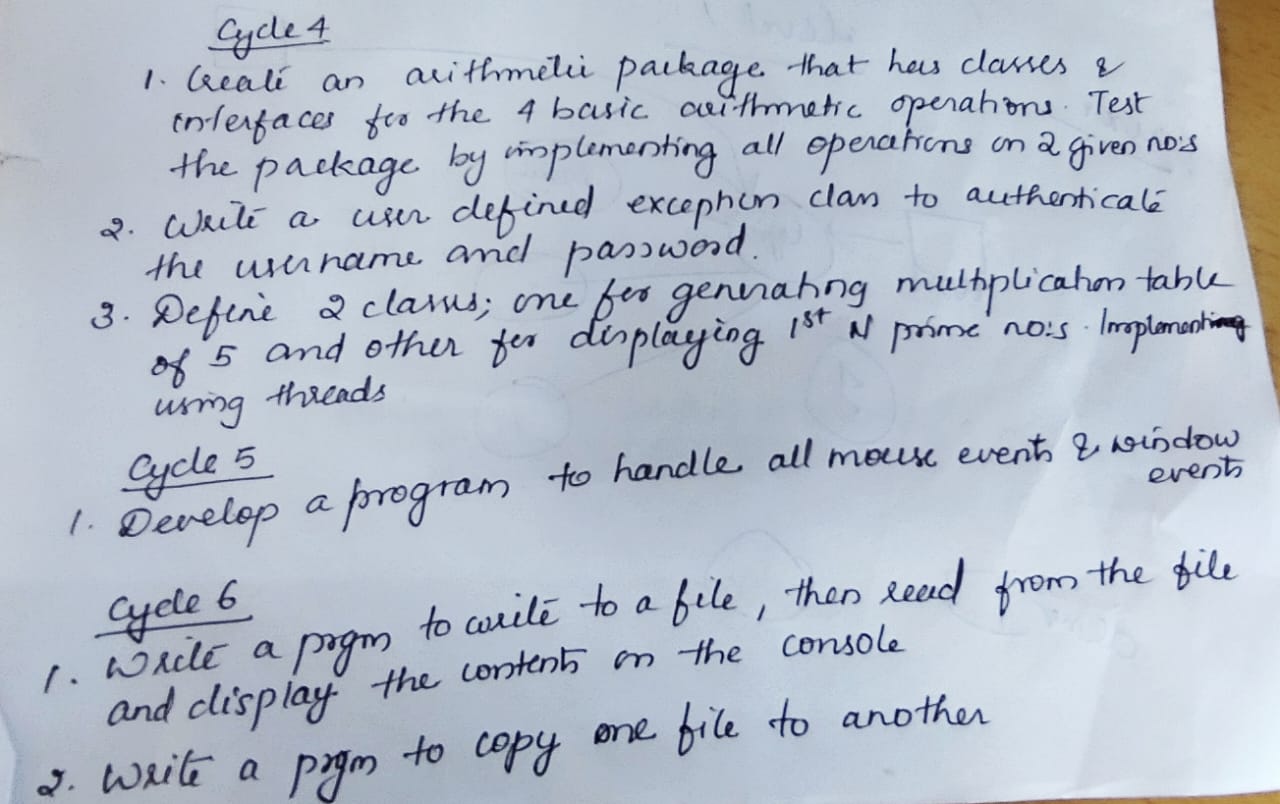 Cycle 4
1. Create an arithmetic package that has classes &
interfaces for the 4 basic arithmetic operations. Test
the package by implementing all operations on 2 given no's
2. Write a user defined exception class to authenticate
the username and password.
3. Define 2 classes; one for generating multiplication table
of 5 and other for displaying 1st N prime no:s. Implementing
using threads
Cycle 5
1. Develop a program to handle all mouse events & window
events
Cycle 6
1. Write a prgm to write to a file, then read from the file
and display the contents on the console
2. Write a prgm to copy one file to another